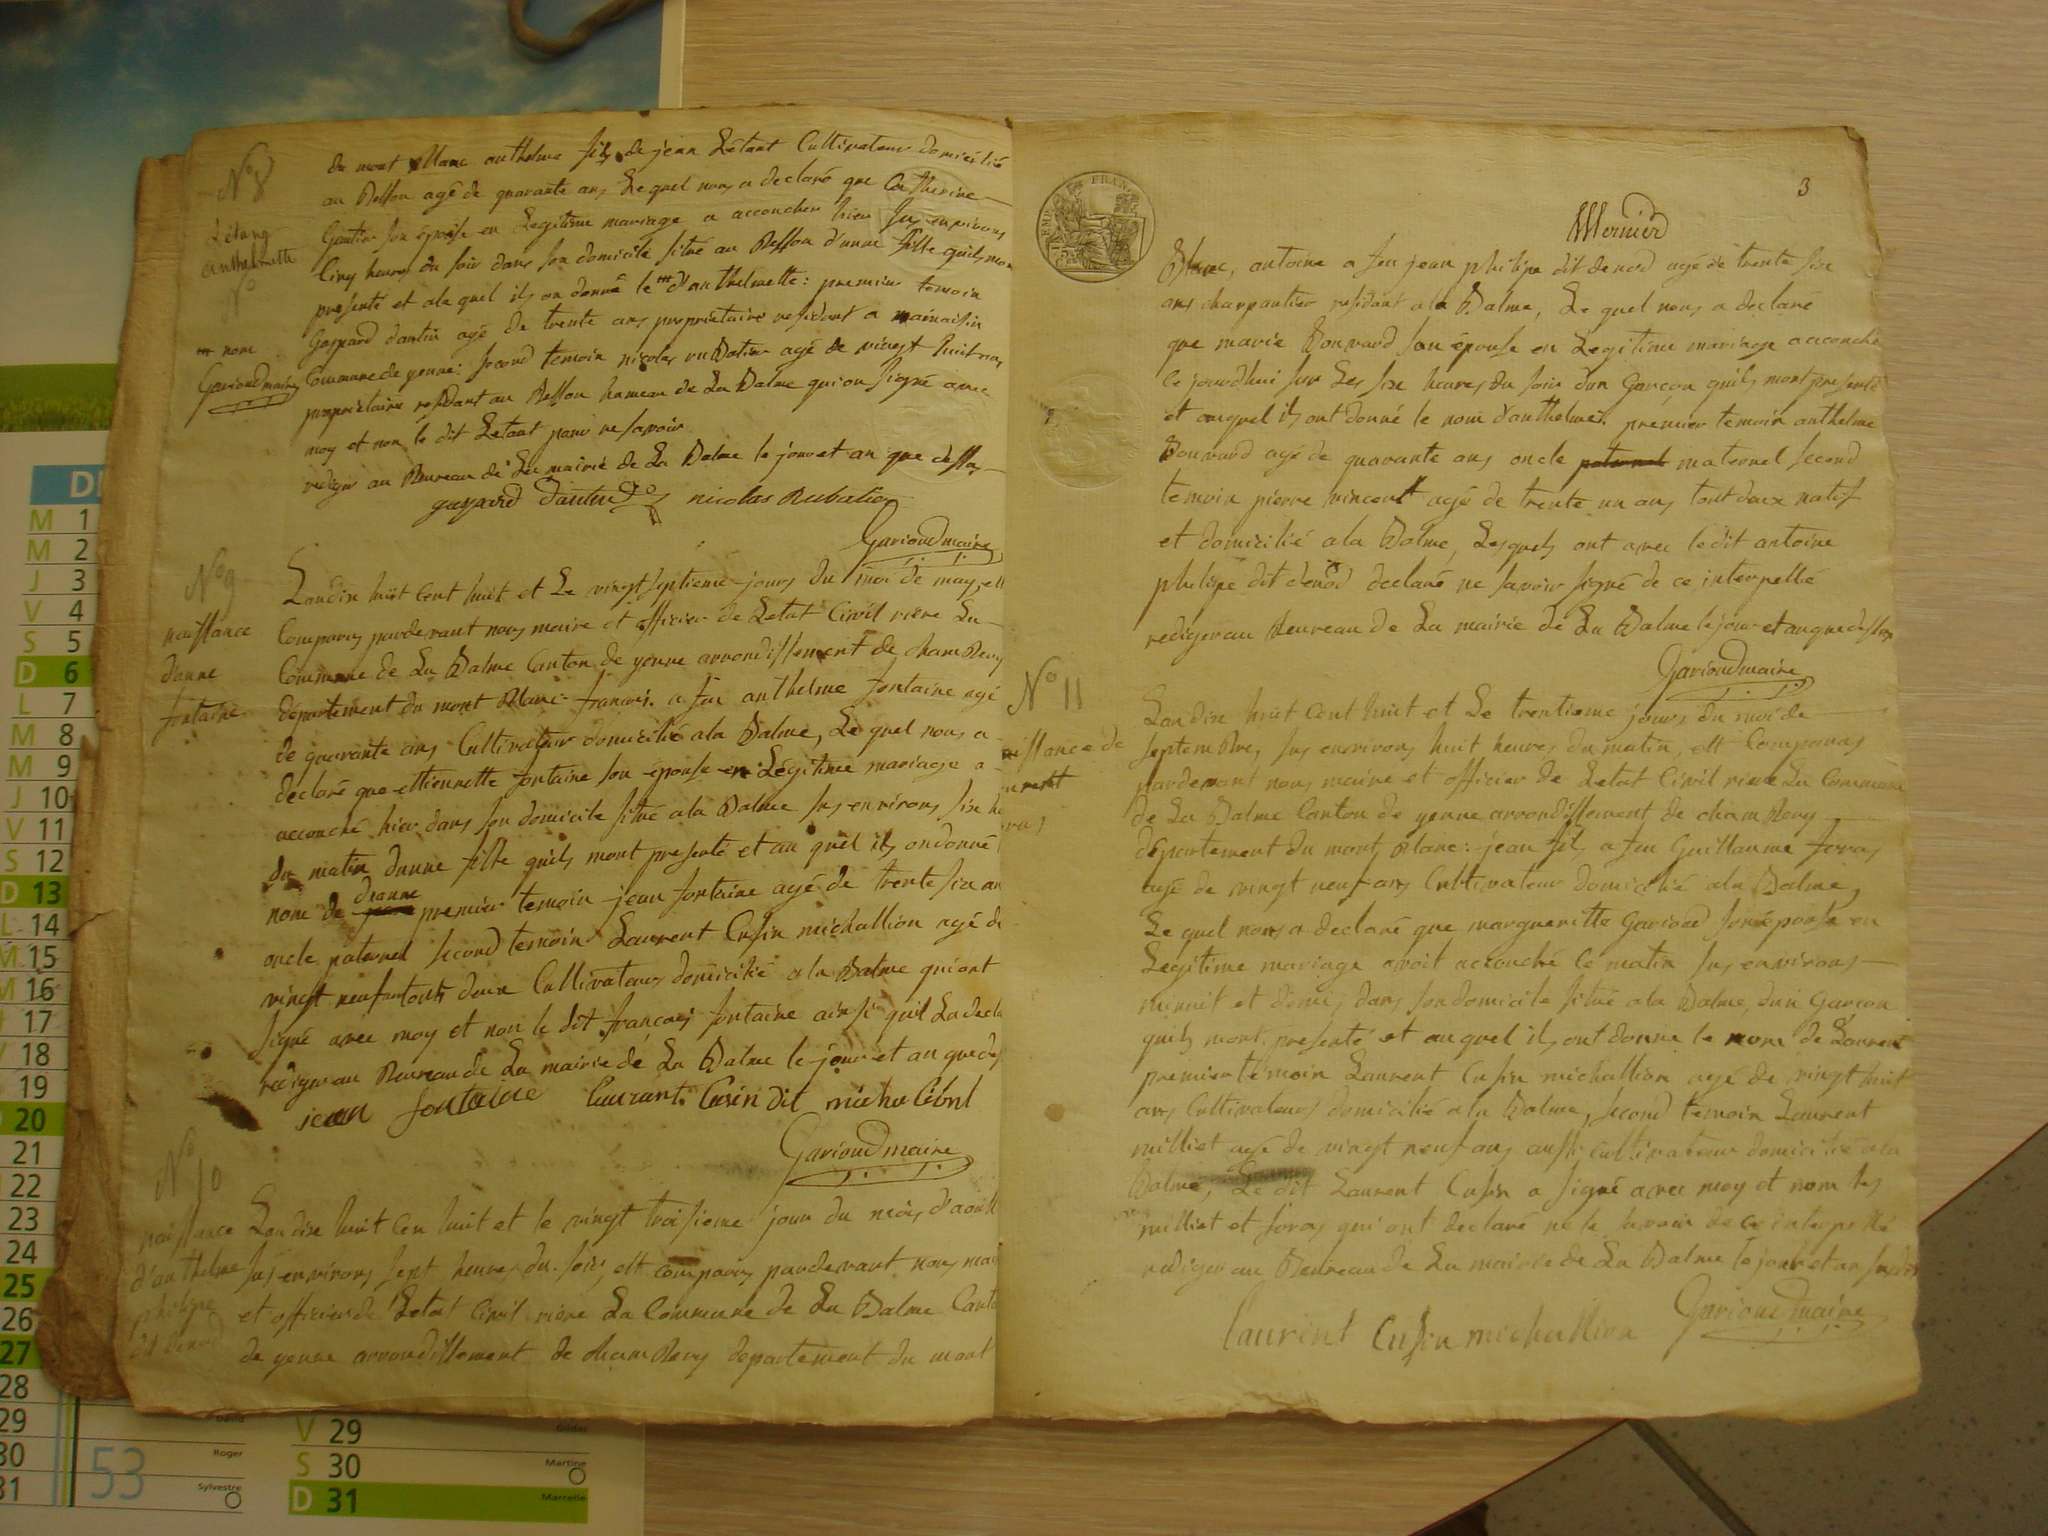 N° 8
Létang
anthelmette
N°
nom
Garioud maire
du mont Blanc anthelme fils de jean Létant Cultivateur domicilié
au Besson agé de quarante ans Lequel nous a declaré que Catherine
Gantin son épouse en Legitime mariage a accoucher hier sus environs
Cinq heures du soir dans son domicile situé au Besson d'unne fille quils mon
presenté et ala quel ils on donné le d'anthelmette: premier temoin
Gaspard dantin agé de trente ans proprietaire residant a
Commune de yenne: second temoin nicolas rubatier agé de vingt huit ans
propriétaire residant au Besson hameau de La Balme qui on signé avec
moy et non le dit Letant pour ne savoir
rediger au Bureau de La mairie de La Balme le jour et an que dessus
gaspard dantin nicolas Rubatier
Garioud maire
N° 9
naissance
danne
fontaine
Landix huit Cent huit et Le vingt septieme jours du moi de may, est
Comparus pardevant nous maire et officier de Letat Civil riere La
Commune de La Balme Canton de yenne arrondissement de chamBery
département du mont Blanc: francois a feu anthelme fontaine agé
de quarante ans Cultivateur domicilié ala Balme, Le quel nous a
declaré que ettiennette fontaine son épouse en Légitime mariage a
accouché hier dans son domicile situé ala Balme sus environs six he
du matin dunne fille quils mont presenté et au quel ils on donné l
nom de dianne premier temoin jean fontaine agé de trente six an
oncle paternel second temoin Laurent Cusin michallion agé de
vingt neuf an touts deux Cultivateurs domicilié ala Balme qui ont
signé avec moy et non le dit francois fontaine ainsi quil La decla
rediger au Bureau de La mairie de La Balme le jour et an que des
jean fontaine laurant Casin dit
Garioud maire
N° 10
naissance
d'anthelme
philipe
dit denod
Landix huit Cen huit et le vingt troisieme jour du mois d'aoust
sus environs sept heures du soir, est comparus pardevant nous mai
et officier de Letat Civil riere La Commune de La Balme Canto
de yenne arrondissement de chamBery departement du mont
3
Mernier
EMP. FRAN
Blanc, antoine a feu jean philipe dit denod agé de trente six
ans charpantier residant ala Balme, Le quel nous a declaré
que marie Bouvard son épouse en Legitime mariage a accouché
Ce jourdhui sur Les six heures du soir dun Garçon quils mont presenté
et auquel ils ont donné le nom d'anthelme. premier temoin anthelme
Bouvard agé de quarante ans oncle paternel maternel second
temoin pierre vincent agé de trente un ans tout deux natif
et domicilié ala Balme, Lesquels ont avec le dit antoine
philipe dit denod declaré ne savoir signé de ce interpellé
rediger au Beureau de La mairie de La Balme le jour et an que dessus
Garioud maire
N° 11
issance de
urent
eras
Landix huit Cent huit et Le trentieme jours du moi de
septemBre, sus environs huit heures du matin, est Comparus
pardevant nous maire et officier de Letat Civil riere La Commune
de La Balme Canton de yenne arrondissement de chamBery
département du mont Blanc: jean fils a feu Guillaume feras
agé de vingt neuf ans Cultivateur domicilié ala Balme,
Le quel nous a declaré que margueritte Garioud son épouse en
Legitime mariage avoit accouché Ce matin sus environs
minuit et demi, dans son domicile situé ala Balme, dun Garcon
quils mont presenté et au quel ils ont donné le nom de Laurent
premier témoin Laurent Cusin michallion agé de vingt huit
ans Cultivateurs domicilié ala Balme, second temoin Laurent
milliet agé de vingt neuf ans aussi cultivateur domicilié ala
Balme, Le dit Laurent Cusin a signé avec moy et nom les
milliet et feras qui ont declaré ne le savoir de ce interpellé
rediger au Beureau de La mairie de La Balme le jour et an susdits
laurent Cusin michallion Garioud maire
M 1
M 2
J 3
V 4
S 5
D 6
L 7
M 8
M 9
J 10
V 11
S 12
D 13
L 14
M 15
M 16
17
18
19
20
21
22
23
24
25
26
27
28
29
30
31
53
Roger
Sylvestre
V 29
S 30 Martine
D 31 Marcelle